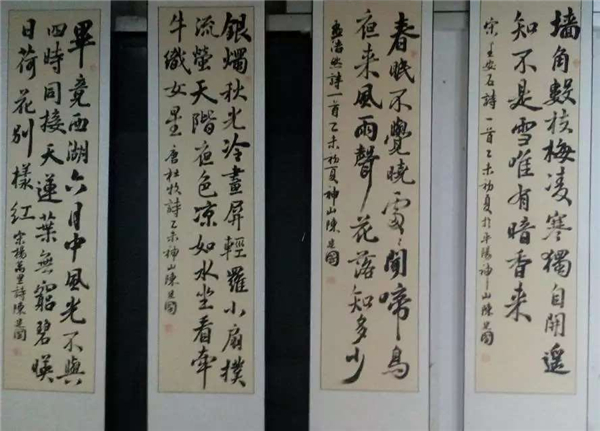 墙角數枝梅凌寒獨自開遥
知不是雪唯有暗香来
宋王安石詩一首乙未初夏於平陽神山陳國
春眠不覺曉處〻聞啼鳥
夜来風雨聲花落知多少
孟浩然詩一首乙未初夏神山陳國
銀燭秋光冷畫屏輕羅小扇撲
流螢天階夜色凉如水坐看牽
牛織女星 唐杜牧詩乙未神山陳國
畢竟西湖六月中風光不與
四時同接天蓮葉無窮碧暎
日荷花别樣红 宋楊萬里詩陳國